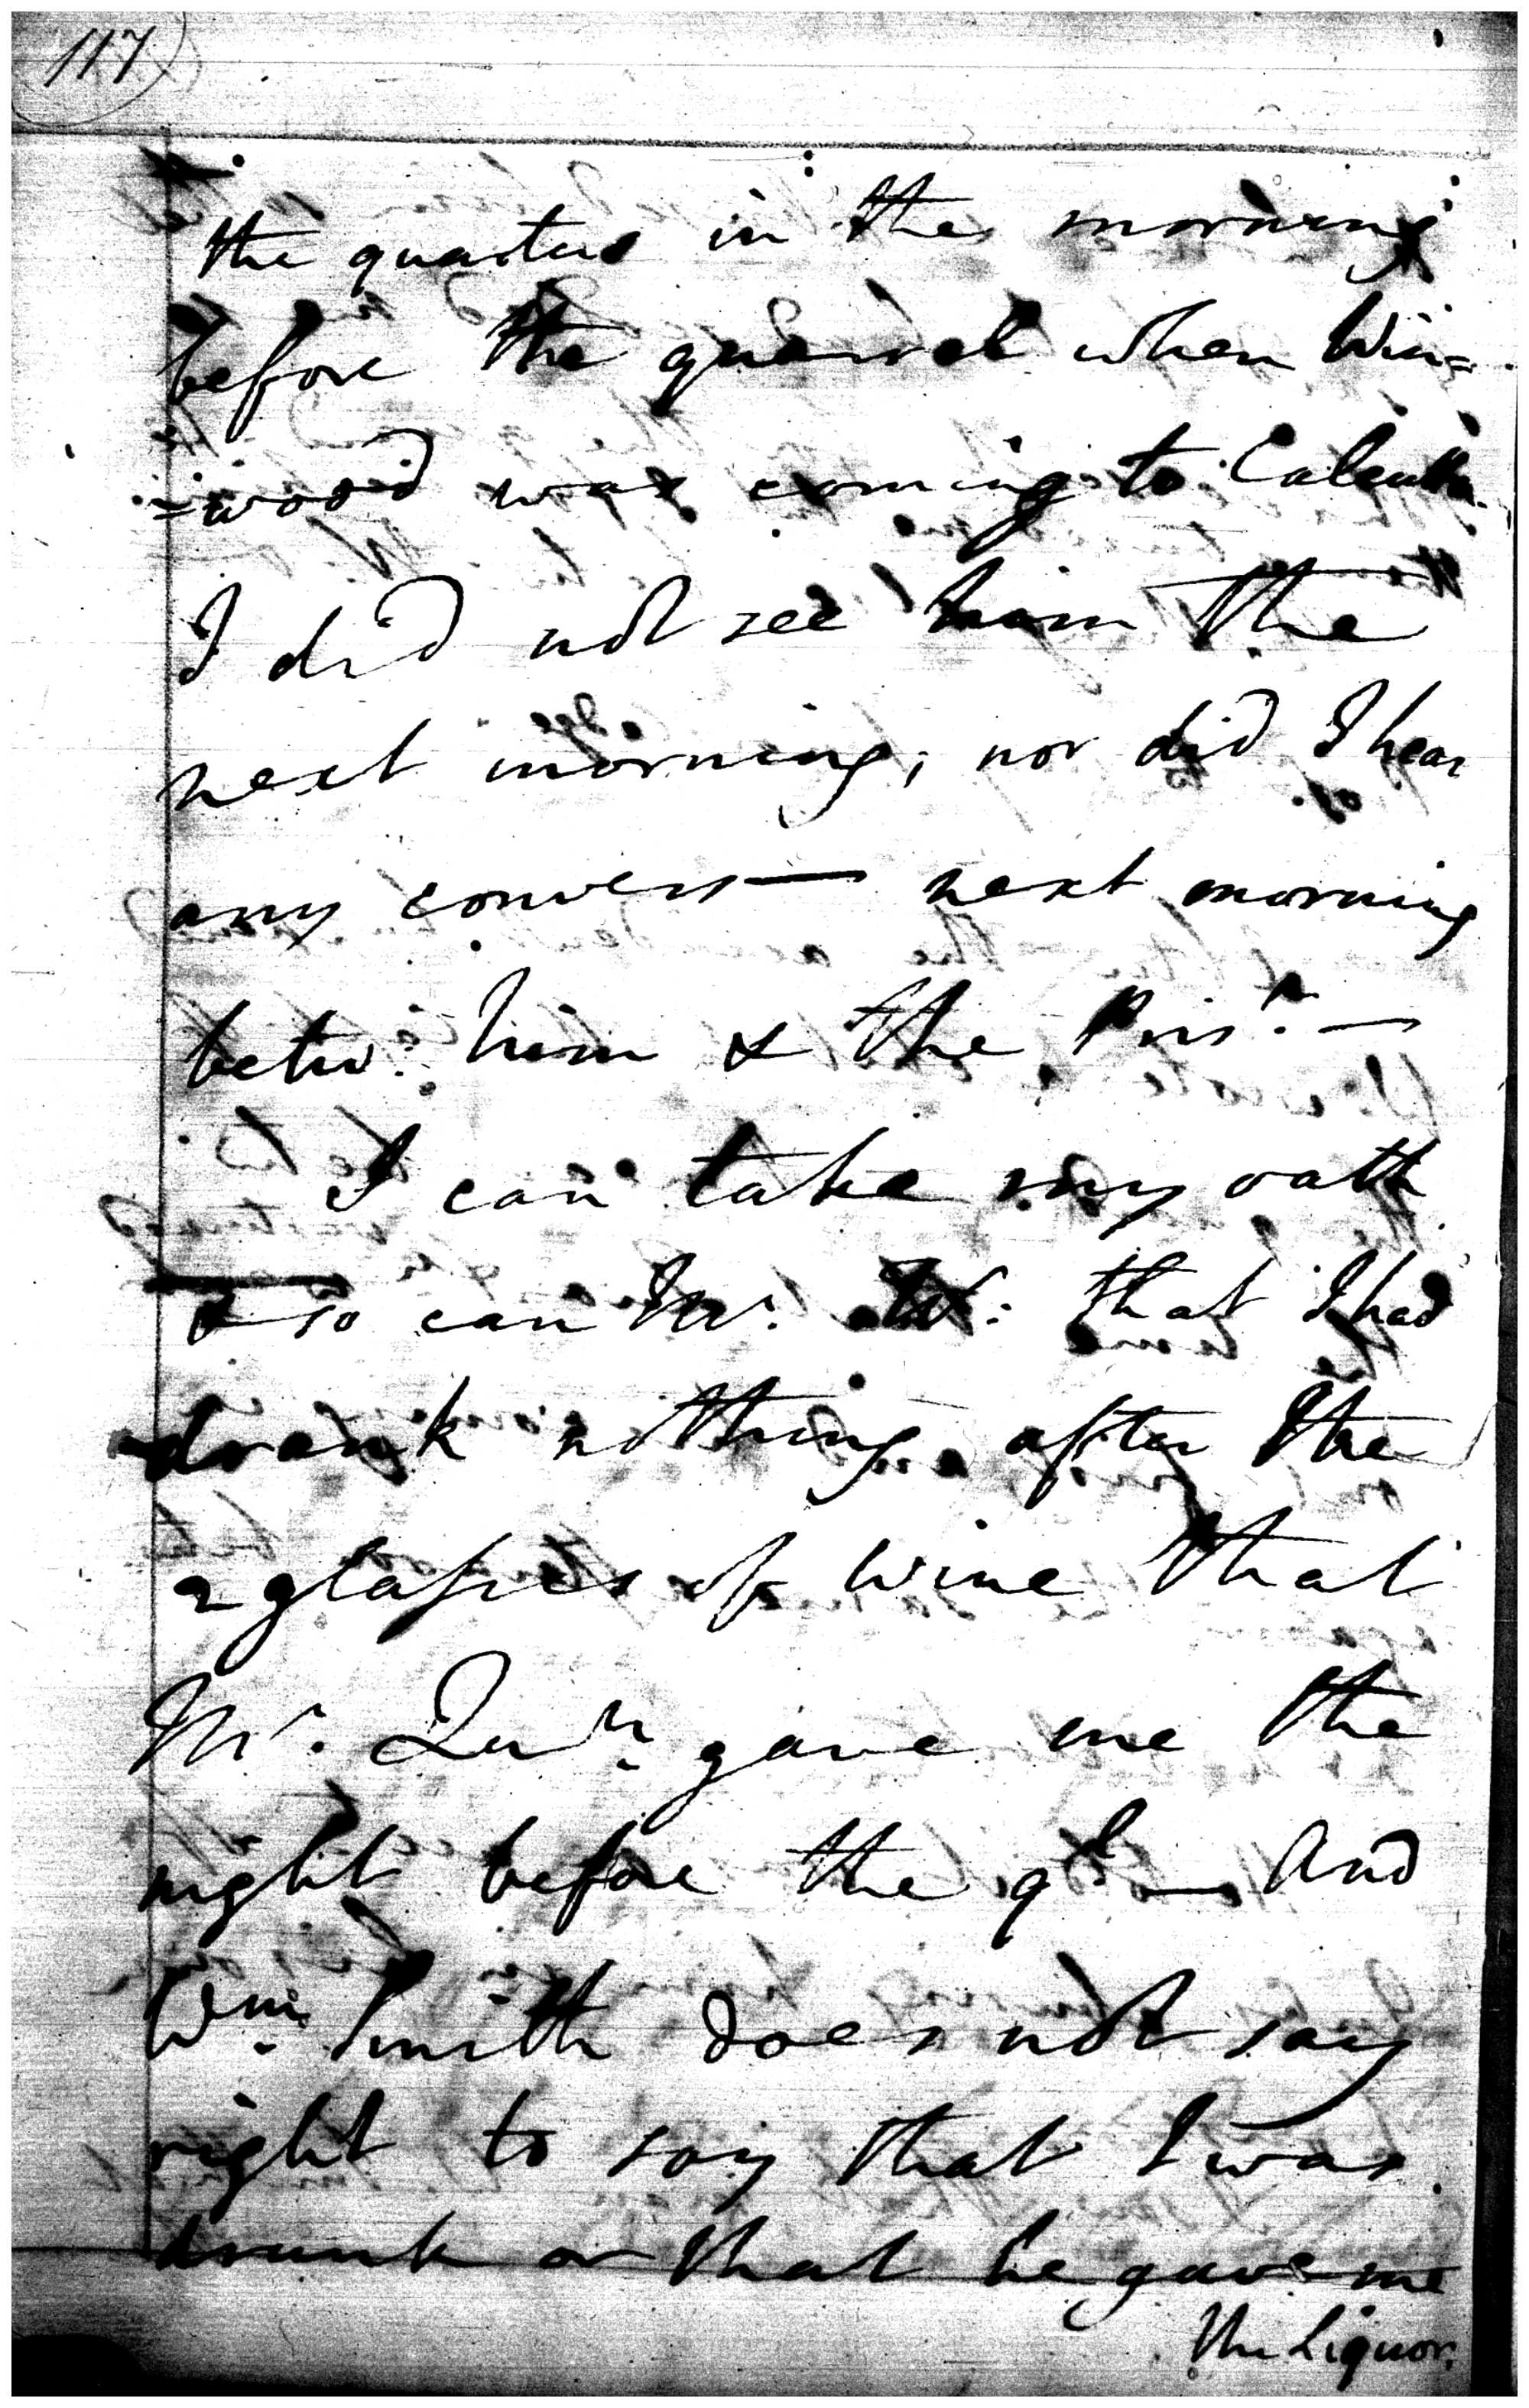 117
the quarters in the morning
before the quarrel when Win=
=wood was coming to Calcutta.
I did not see him the
next morning; nor did I hear
any convers— next morning
betw: him & the Prisr. —
I can take my oath
& so can Mr. W: that I had
drank nothing after the
2 glasses of wine that
Mr. Qun gave me the
night before the ql — And
Wm. Smith does not say
right to say that I was
drunk or that he gave me
the Liquor.